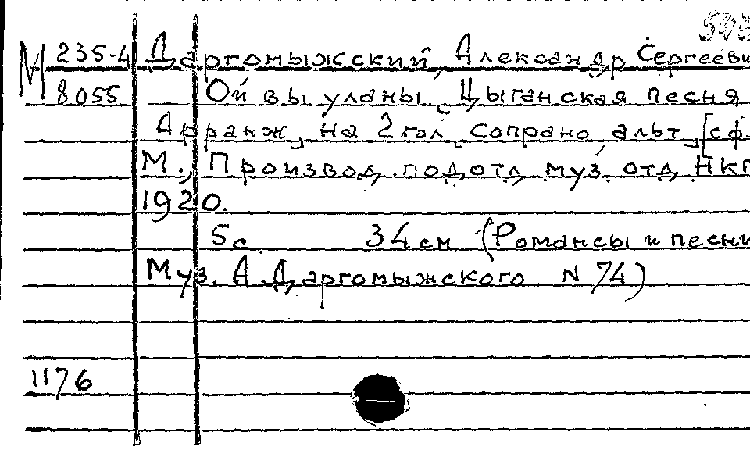 М 235-4 Даргомыжский, Александр Сергееви
8055 Ой вы уланы. Цыганская песня
Арранж. на 2 гол. сопрано, альт [сф
М., Производ. подотд. муз. отд. НКП
1920.
5 с. 34 см (Романсы и песни
Муз. А. Даргомыжского N 74)
1176